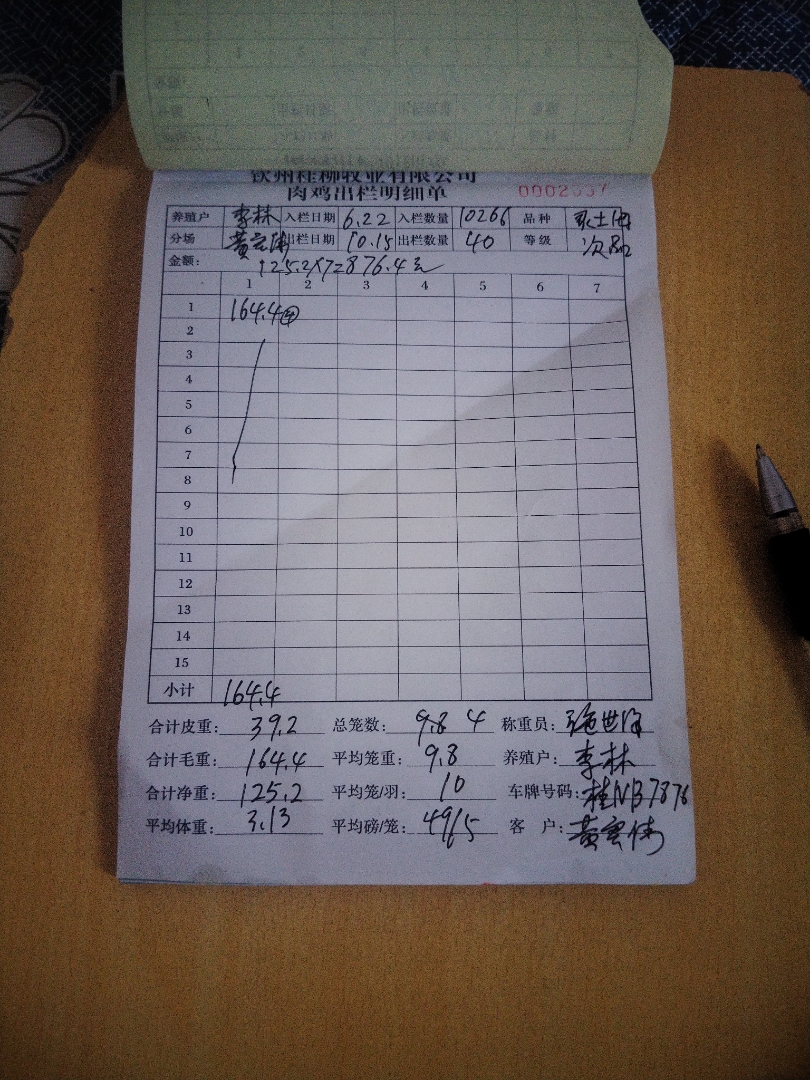 钦州桂柳牧业有限公司
肉鸡出栏明细单
养殖户 李林 入栏日期 6.22 入栏数量 10266 品种
分场 黄宏伟 出栏日期 10.15 出栏数量 40 等级 次品
金额: 125.2×7=876.4元
1 2 3 4 5 6 7
1 164.4④
2
3
4
5
6
7
8
9
10
11
12
13
14
15
小计 164.4
合计皮重: 39.2 总笼数: 4 称重员:
合计毛重: 164.4 平均笼重: 9.8 养殖户: 李林
合计净重: 125.2 平均笼/羽: 10 车牌号码: 桂NB7876
平均体重: 3.13 平均磅/笼: 客 户: 黄宏伟